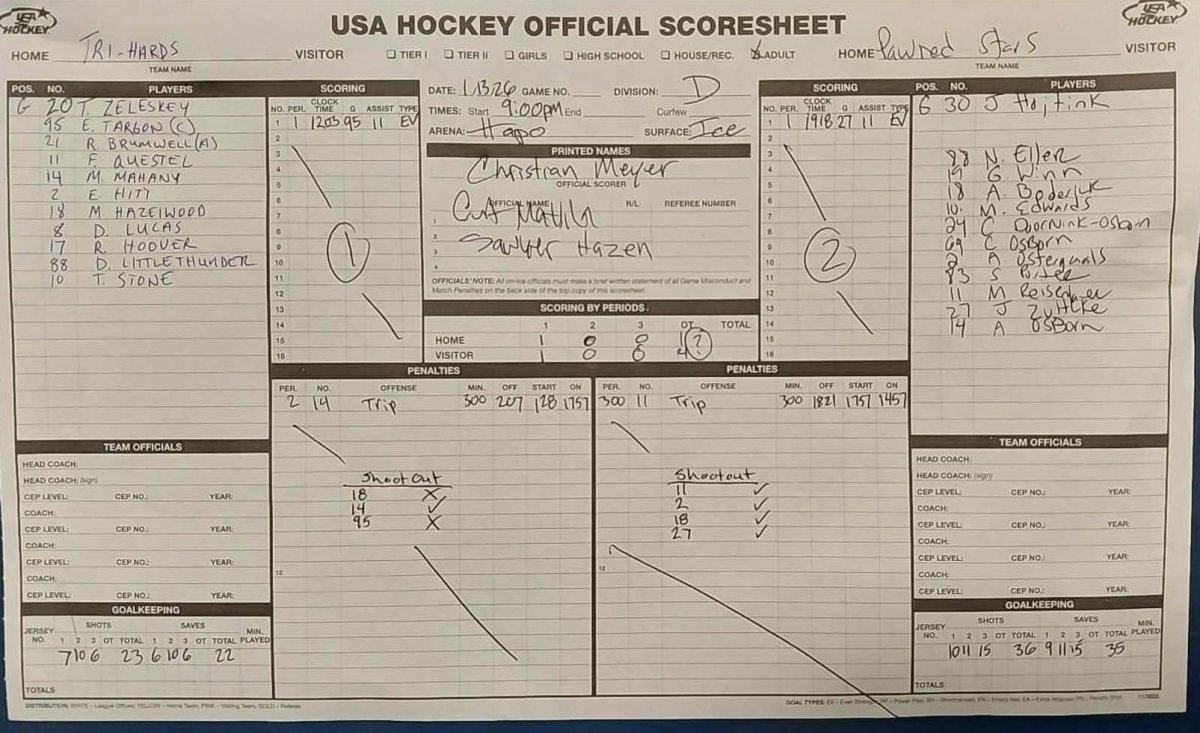 USA HOCKEY
USA HOCKEY OFFICIAL SCORESHEET
USA HOCKEY
HOME TRI-HARDS VISITOR
TEAM NAME
☐ TIER I ☐ TIER II ☐ GIRLS ☐ HIGH SCHOOL ☐ HOUSE/REC. ☒ ADULT
HOME Pawned Stars VISITOR
TEAM NAME
POS. NO. PLAYERS
G 20 T. ZELESKEY
95 E. TARGON (C)
21 R. BRUMWELL (A)
11 F. QUESTEL
14 M. MAHANY
2 E. HITI
18 M HAZELWOOD
8 D. LUCAS
17 R. HOOVER
88 D. LITTLETHUNDER
10 T. STONE
SCORING
NO. PER. CLOCK TIME G ASSIST TYPE
1 1 1203 95 11 EV
2
3
4
5
6
7
8
9
10
11
12
13
14
15
16
1
DATE: 1/13/26 GAME NO. DIVISION: D
TIMES: Start 9:00pm End Curfew
ARENA: Hapo SURFACE: Ice
PRINTED NAMES
Christian Meyer
OFFICIAL SCORER
OFFICIAL NAME R/L REFEREE NUMBER
1
2
3 Sawyer Hazen
4
OFFICIALS' NOTE: All on-ice officials must make a brief written statement of all Game Misconduct and
Match Penalties on the back side of the top copy of this scoresheet.
SCORING BY PERIODS
1 2 3 OT TOTAL
HOME 1 0 0 1
VISITOR 1 0 0 4
?
SCORING
NO. PER. CLOCK TIME G ASSIST TYPE
1 1 1918 27 11 EV
2
3
4
5
6
7
8
9
10
11
12
13
14
15
16
2
POS. NO. PLAYERS
G 30 J Hojtink
88 N. Eller
19 G Winn
18 A.
10. M. Edwards
24 C Doornink-Osborn
69 C Osborn
2 A.
83 S
11 M
27 J
14 A OSBorn
PENALTIES
PER. NO. OFFENSE MIN. OFF START ON
2 14 Trip 300 207 128 1757
Shoot Out
18 X
14 ✓
95 X
12
PENALTIES
PER. NO. OFFENSE MIN. OFF START ON
300 11 Trip 300 1821 1757 1457
Shootout
11 ✓
2 ✓
18 ✓
27 ✓
12
TEAM OFFICIALS
HEAD COACH:
HEAD COACH: (sign)
CEP LEVEL: CEP NO.: YEAR:
COACH:
CEP LEVEL: CEP NO.: YEAR:
COACH:
CEP LEVEL: CEP NO.: YEAR:
COACH:
CEP LEVEL: CEP NO.: YEAR:
GOALKEEPING
SHOTS SAVES
JERSEY NO. 1 2 3 OT TOTAL 1 2 3 OT TOTAL MIN. PLAYED
7 10 6 23 6 10 6 22
TOTALS
TEAM OFFICIALS
HEAD COACH:
HEAD COACH: (sign)
CEP LEVEL: CEP NO.: YEAR:
COACH:
CEP LEVEL: CEP NO.: YEAR:
COACH:
CEP LEVEL: CEP NO.: YEAR:
COACH:
CEP LEVEL: CEP NO.: YEAR:
GOALKEEPING
SHOTS SAVES
JERSEY NO. 1 2 3 OT TOTAL 1 2 3 OT TOTAL MIN. PLAYED
10 11 15 36 9 11 15 35
TOTALS
DISTRIBUTION: WHITE – League Offices; YELLOW – Home Team; PINK – Visiting Team; GOLD – Referee
GOAL TYPES: EV – Even Strength, PP – Power Play, SH – Shorthanded, EN – Empty Net, EA – Extra Attacker, PS – Penalty Shot